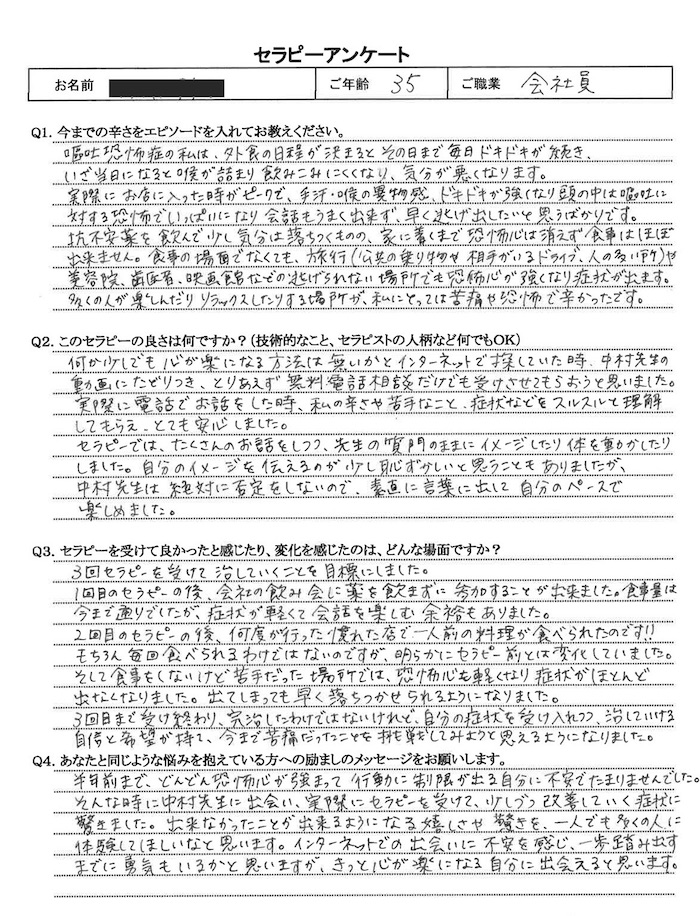 セラピーアンケート
お名前 ご年齢 35 ご職業 会社員
Q1. 今までの辛さをエピソードを入れてお教えください。
嘔吐恐怖症の私は、外食の日程が決まるとその日まで毎日ドキドキが続き、
いざ当日になると喉が詰まり飲みこみにくくなり、気分が悪くなります。
実際にお店に入った時がピークで、手汗・喉の異物感、ドキドキが強くなり頭の中は嘔吐に
対する恐怖でいっぱいになり会話もうまく出来ず、早く逃げ出したいと思うばかりです。
抗不安薬を飲んで少し気分は落ちつくものの、家に着くまで恐怖心は消えず食事はほぼ
出来ません。食事の場面でなくても、旅行(公共の乗り物や相手がいるドライブ、人の多い所)や
美容院、歯医者、映画館などの逃げられない場所でも恐怖心が強くなり症状が出ます。
多くの人が楽しんだりリラックスしたりする場所が、私にとっては苦痛や恐怖で辛かったです。
Q2. このセラピーの良さは何ですか?(技術的なこと、セラピストの人柄など何でもOK)
何か少しでも心が楽になる方法は無いかとインターネットで探していた時、中村先生の
動画にたどりつき、とりあえず無料電話相談だけでも受けさせてもらおうと思いました。
実際に電話でお話をした時、私の辛さや苦手なこと、症状などをスルスルと理解
してもらえ、とても安心しました。
セラピーでは、たくさんのお話をしつつ、先生の質問のままにイメージしたり体を動かしたり
しました。自分のイメージを伝えるのが少し恥ずかしいと思うこともありましたが、
中村先生は絶対に否定をしないので、素直に言葉に出して自分のペースで
楽しめました。
Q3. セラピーを受けて良かったと感じたり、変化を感じたのは、どんな場面ですか?
3回セラピーを受けて治していくことを目標にしました。
1回目のセラピーの後、会社の飲み会に薬を飲まずに参加することが出来ました。食事量は
今まで通りでしたが、症状が軽くて会話を楽しむ余裕もありました。
2回目のセラピーの後、何度か行った慣れた店で一人前の料理が食べられたのです!!
もちろん毎回食べられるわけではないのですが、明らかにセラピー前とは変化していました。
そして食事をしないけど苦手だった場所では、恐怖心も軽くなり症状がほとんど
出なくなりました。出てしまっても早く落ちつかせられるようになりました。
3回目まで受け終わり、完治したわけではないけれど、自分の症状を受け入れつつ、治していける
自信と希望が持て、今まで苦痛だったことを挑戦してみようと思えるようになりました。
Q4. あなたと同じような悩みを抱えている方への励ましのメッセージをお願いします。
半年前まで、どんどん恐怖心が強まって行動に制限が出る自分に不安でたまりませんでした。
そんな時に中村先生に出会い、実際にセラピーを受けて、少しづつ改善していく症状に
驚きました。出来なかったことが出来るようになる嬉しさや驚きを、一人でも多くの人に
体験してほしいなと思います。インターネットでの出会いに不安を感じ、一歩踏み出す
までに勇気もいるかと思いますが、きっと心が楽になる自分に出会えると思います。